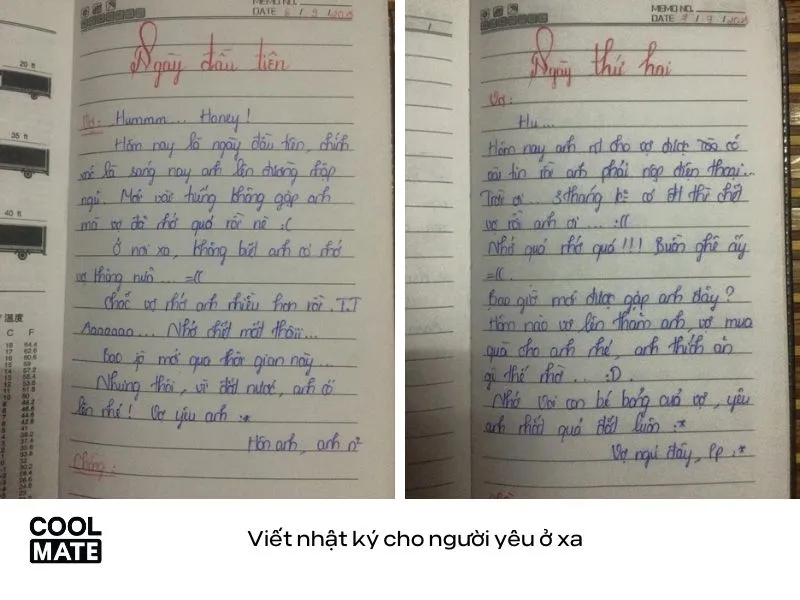 MEMO NO.
DATE 6 / 9 / 2013
Ngày đầu tiên
Vợ: Hummm... Honey!
Hôm nay là ngày đầu tiên, chính
xác là sáng nay anh lên đường nhập
ngũ. Mới vài tiếng không gặp anh
mà vợ đã nhớ quá rồi nè :(
Ở nơi xa, không biết anh có nhớ
vợ không nữa... =((
Chắc vợ nhớ anh nhiều hơn rồi. T.T
Aaaaaaa... Nhớ chết mất thôiii...
Bao giờ mới qua thời gian này...
Nhưng thôi, vì đất nước, anh cố
lên nhé! Vợ yêu anh :*
Hôn anh, anh n²
Chồng:
20 ft
35 ft
40 ft
温度
C F
MEMO NO.
DATE 7 / 9 /
Ngày thứ hai
Vợ:
Hu...
Hôm nay anh nt cho vợ được có
vài tin rồi anh phải nộp điện thoại...
Trời ơi... 3 tháng k có đt thì chết
vợ rồi anh ơi... :((
Nhớ quá nhớ quá!!! Buồn ghê ấy
=((.
Bao giờ mới được gặp anh đây?
Hôm nào vợ lên thăm anh, vợ mua
quà cho anh nhé, anh thích ăn
gì thế nhờ... :D.
Nhớ voi con bé bỏng của vợ, yêu
anh nhất quả đất luôn :*
Vợ ngủ đây, pp :*
COOL
MATE
Viết nhật ký cho người yêu ở xa